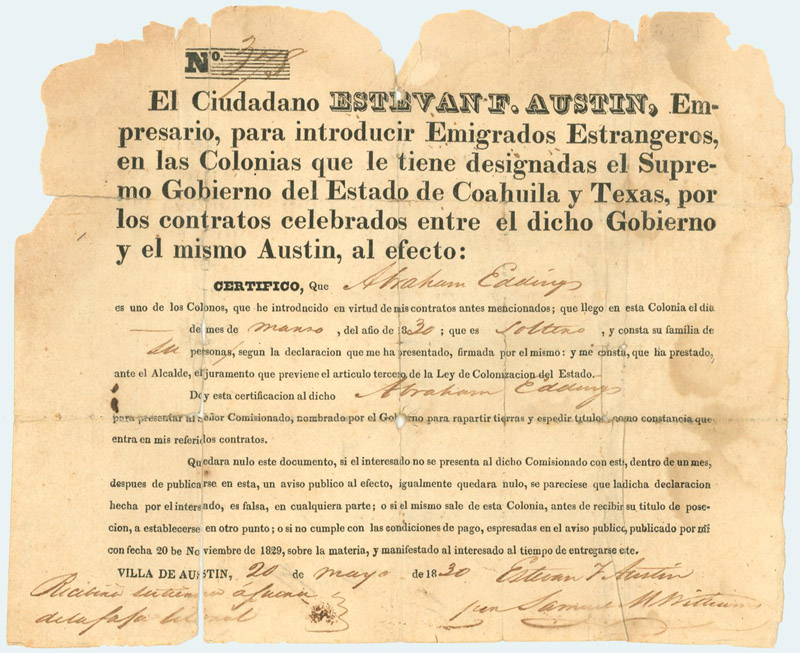 No. 378
El Ciudadano ESTEVAN F. AUSTIN, Em-
presario, para introducir Emigrados Estrangeros,
en las Colonias que le tiene designadas el Supre-
mo Gobierno del Estado de Coahuila y Texas, por
los contratos celebrados entre el dicho Gobierno
y el mismo Austin, al efecto:
CERTIFICO, Que Abraham Eddings
es uno de los Colonos, que he introducido en virtud de mis contratos antes mencionados; que llego en esta Colonia el dia
— de mes de marzo, del año de 1830; que es Soltero, y consta su familia de
su persona, segun la declaracion que me ha presentado, firmada por el mismo: y me consta, que ha prestado,
ante el Alcalde, el juramento que previene el articulo tercero de la Ley de Colonizacion del Estado.
Doy esta certificacion al dicho Abraham Eddings
para presentar al Señor Comisionado, nombrado por el Gobierno para rapartir tierras y espedir titulos, como constancia que
entra en mis referidos contratos.
Quedara nulo este documento, si el interesado no se presenta al dicho Comisionado con este, dentro de un mes,
despues de publicarse en esta, un aviso publico al efecto, igualmente quedara nulo, se pareciese que la dicha declaracion
hecha por el interesado, es falsa, en cualquiera parte; o si el mismo sale de esta Colonia, antes de recibir su titulo de pose-
cion, a establecerse en otro punto; o si no cumple con las condiciones de pago, espresadas en el aviso publico, publicado por mi
con fecha 20 be Noviembre de 1829, sobre la materia, y manifestado al interesado al tiempo de entregarse este.
VILLA DE AUSTIN, 20 de mayo de 1830 Estevan F Austin
Recibira su tierra afuera
por Samuel M Williams
de la litoral